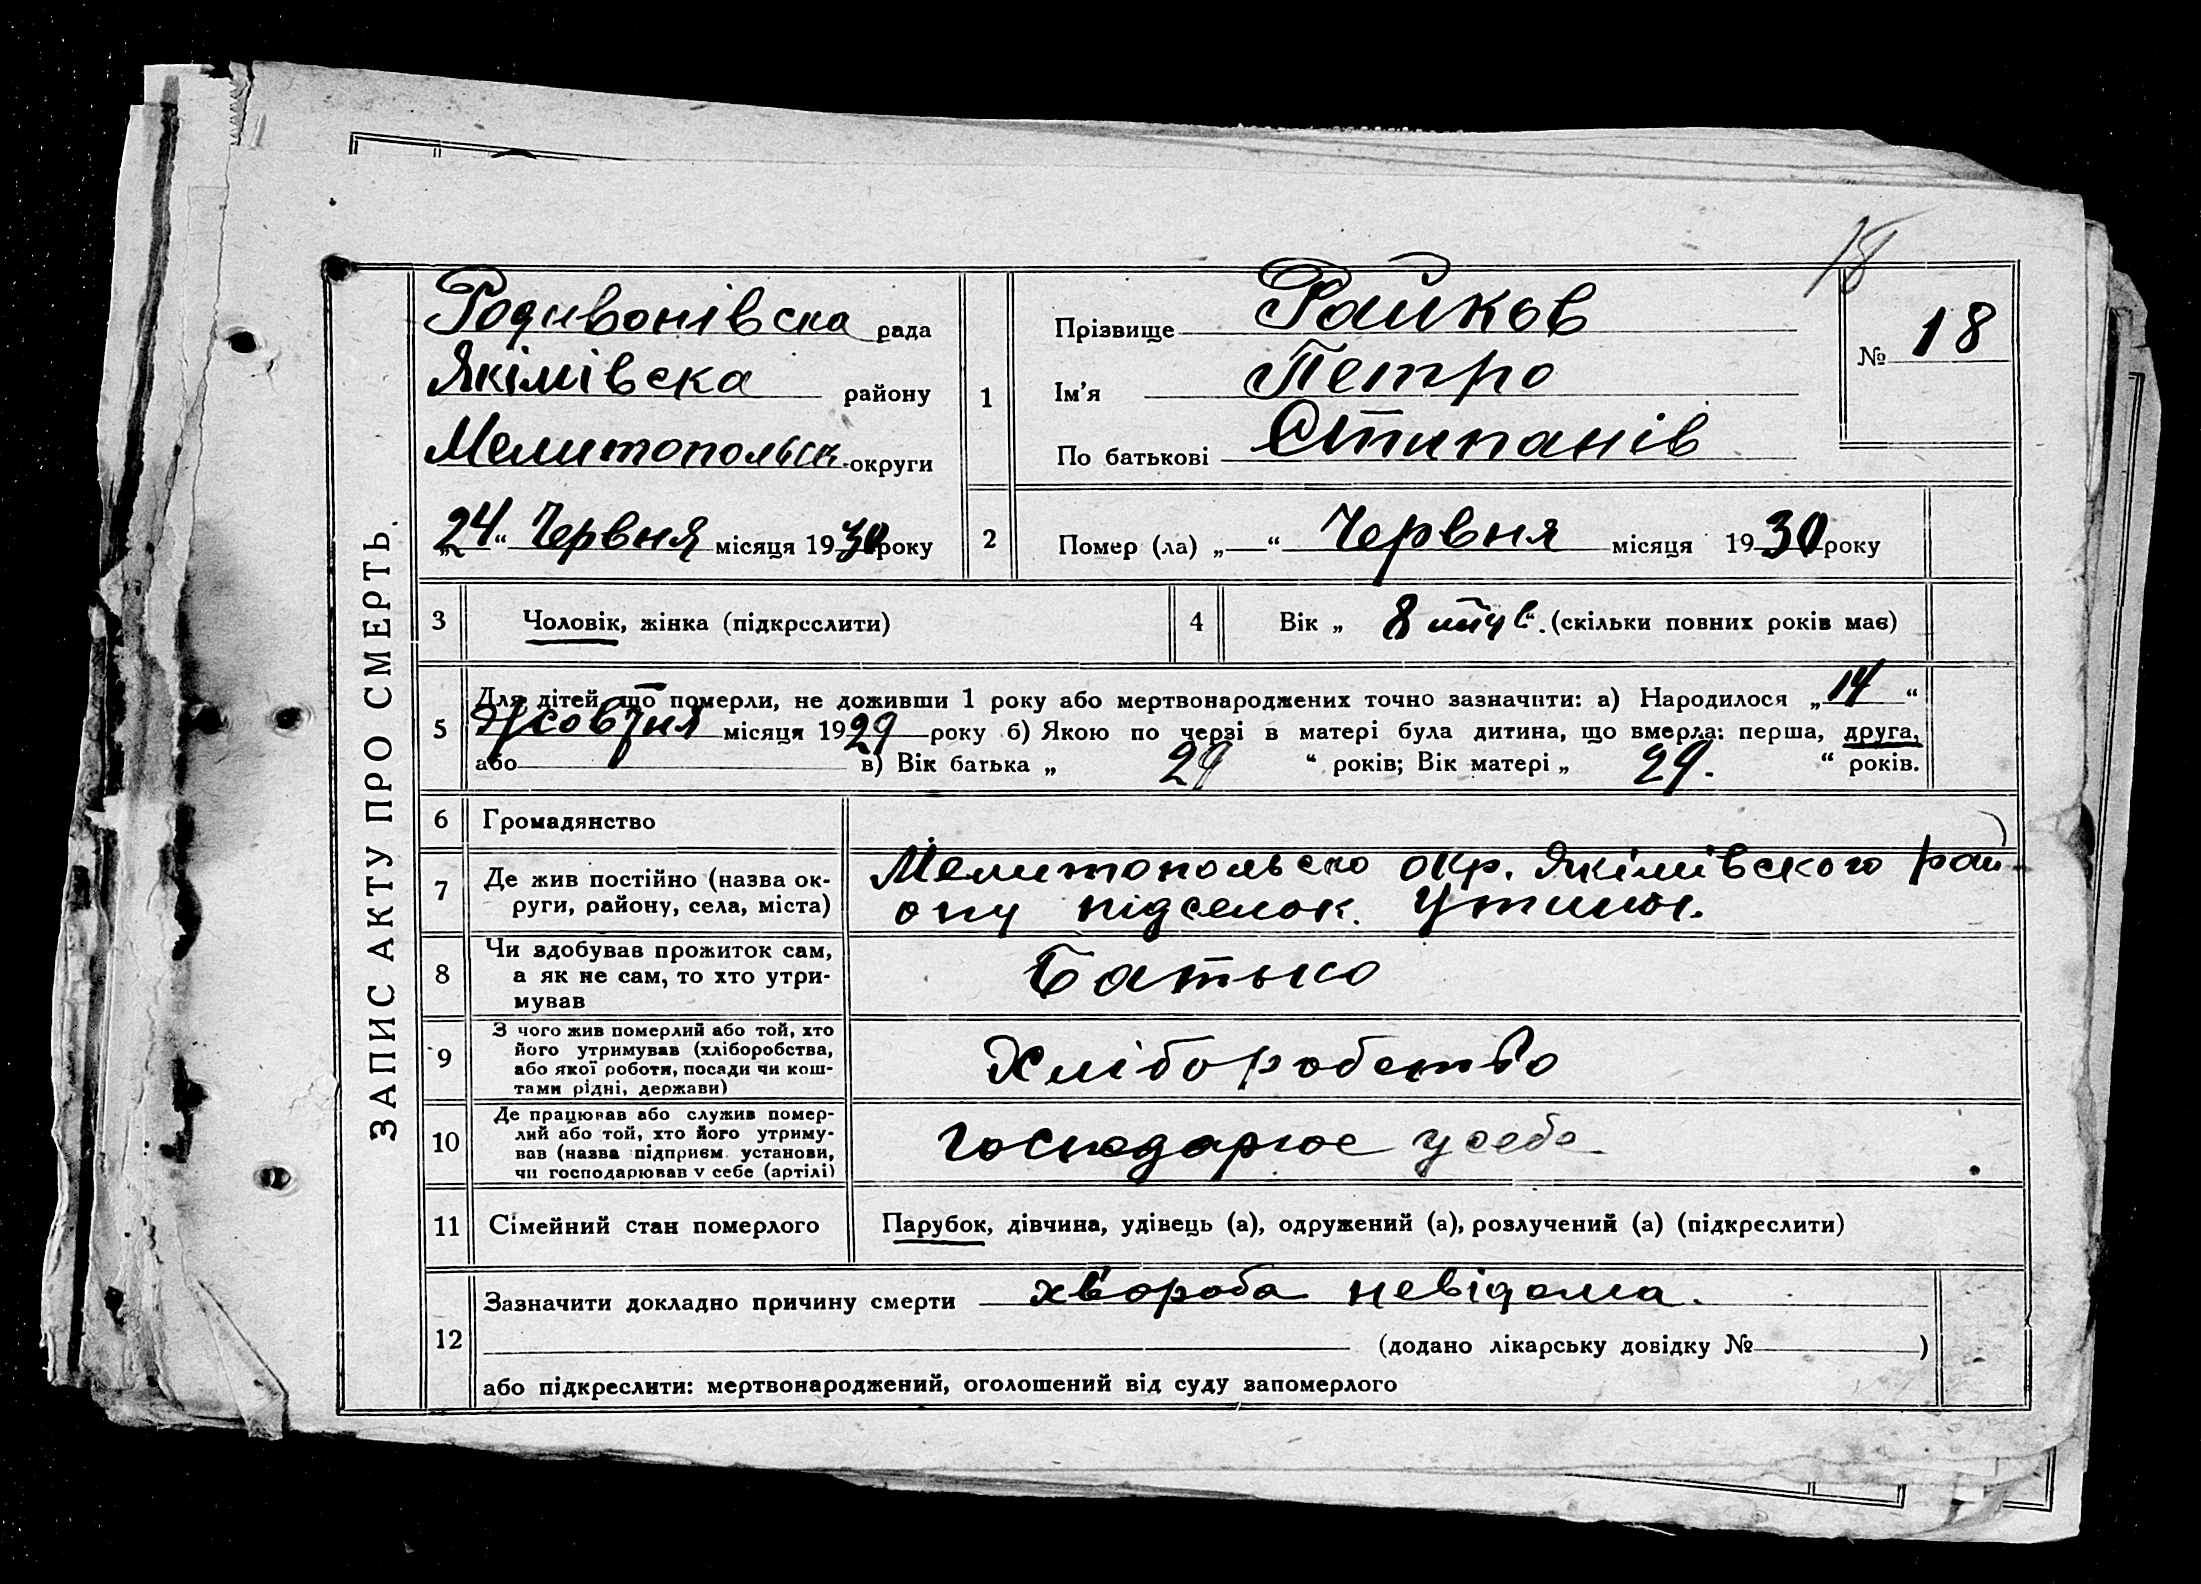 18
ЗАПИС АКТУ ПРО СМЕРТЬ.
Родивонівска рада
Якімівска району
Мелитопольск. округи
„24“ Червня місяця 1930 року
1
Прізвище Райков
Ім'я Петро
По батькові Стипанів
№ 18
2 Помер (ла) „—“ Червня місяця 1930 року
3 Чоловік, жінка (підкреслити)
4 Вік „ 8 “. (скільки повних років має)
5 Для дітей, що померли, не доживши 1 року або мертвонароджених точно зазначити: а) Народилося „14“
Жовтня місяця 1929 року б) Якою по черзі в матері була дитина, що вмерла: перша, друга,
або в) Вік батька „ 29 “ років; Вік матері „ 29. “ років.
6 Громадянство
7 Де жив постійно (назва ок-
руги, району, села, міста)
Мелитопольско окр. Якімівского рай-
ону підселок.
8 Чи здобував прожиток сам,
а як не сам, то хто утри-
мував
Батько
9 З чого жив померлий або той, хто
його утримував (хліборобства,
або якої роботи, посади чи кош-
тами рідні, держави)
Хліборобство
10 Де працював або служив помер-
лий або той, хто його утриму-
вав (назва підприєм. установи,
чи господарював у себе (артілі)
господарює у себе
11 Сімейний стан померлого
Парубок, дівчина, удівець (а), одружений (а), розлучений (а) (підкреслити)
12 Зазначити докладно причину смерти хвороба невідома.
(додано лікарську довідку № )
або підкреслити: мертвонароджений, оголошений від суду запомерлого